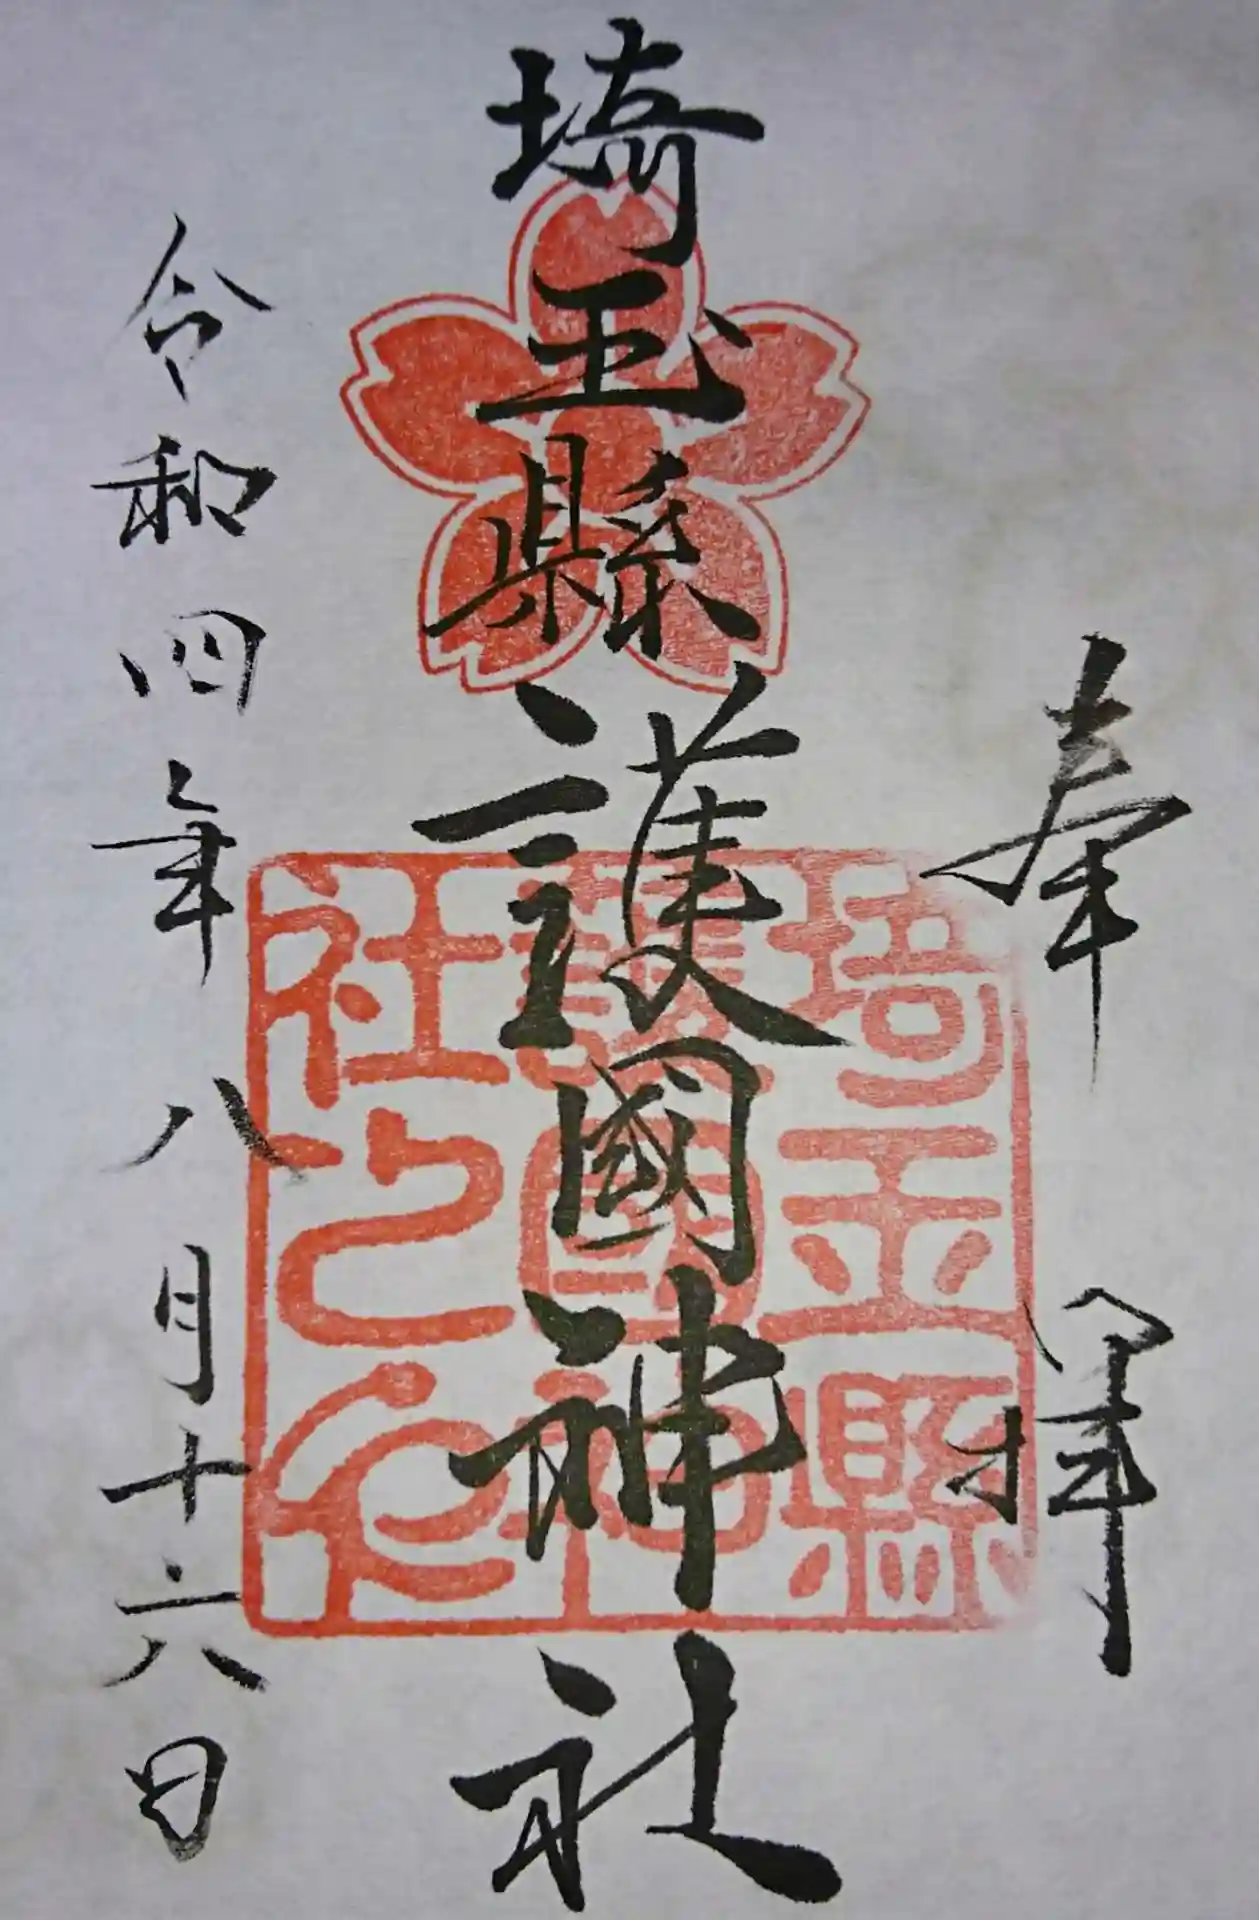 奉拝
埼玉縣護國神社
埼玉縣
護國神
社之印
令和四年八月十六日